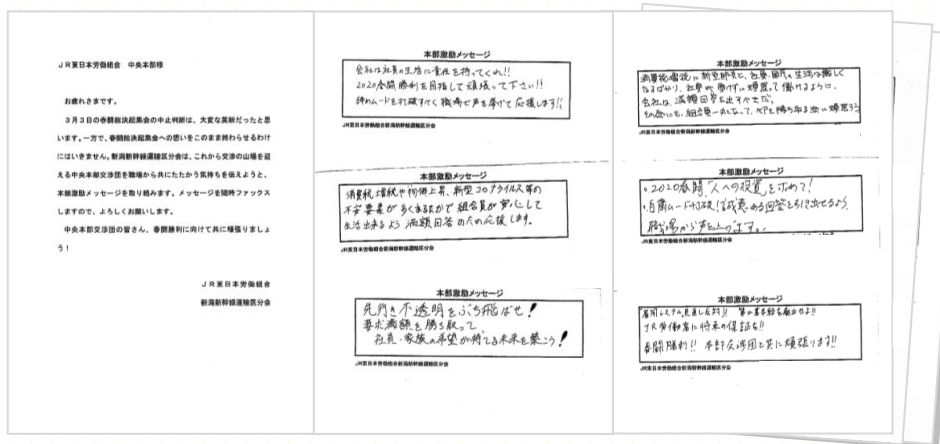 JR東日本労働組合 中央本部様
お疲れさまです。
3月3日の春闘総決起集会の中止判断は、大変な英断だったと思
います。一方で、春闘総決起集会への想いをこのまま終わらせるわけ
にはいきません。新潟新幹線運輸区分会は、これから交渉の山場を迎
える中央本部交渉団を職場から共にたたかう気持ちを伝えようと、
本部激励メッセージを取り組みます。メッセージを随時ファックス
しますので、よろしくお願いします。
中央本部交渉団の皆さん、春闘勝利に向けて共に頑張りましょ
う!
JR東日本労働組合
新潟新幹線運輸区分会
本部激励メッセージ
会社は社員の生活に責任を持ってくれ!!
2020春闘勝利を目指して頑張って下さい!!
ムードを打破すべく職場で声を挙げて応援します!!
JR東日本労働組合新潟新幹線運輸区分会
本部激励メッセージ
消費税増税や物価上昇、新型コロナウイルス等の
不安要素が多くあるなかで組合員が安心して
生活出来るよう満額回答のため応援します。
JR東日本労働組合新潟新幹線運輸区分会
本部激励メッセージ
先行き不透明をぶち飛ばせ!
要求満額を勝ち取って、
社員・家族の希望が持てる未来を築こう!
JR東日本労働組合新潟新幹線運輸区分会
本部激励メッセージ
消費税増税に新型肺炎と、社員、国民の生活は厳しく
なるばかり。社員が
会社は、満額回答を出すべきだ。
組合員一丸となって、ベアを勝ち取る
JR東日本労働組合新潟新幹線運輸区分会
本部激励メッセージ
・2020春闘「人への投資」を求めて!
・自粛ムード打破!誠意ある回答を引き出せるよう、
職場から声を上げます。
JR東日本労働組合新潟新幹線運輸区分会
本部激励メッセージ
見直し反対!! 第二基本給を廃止せよ!!
JR労働者に将来の保証を!!
春闘勝利!! 本部交渉団と共に頑張ります!!
JR東日本労働組合新潟新幹線運輸区分会